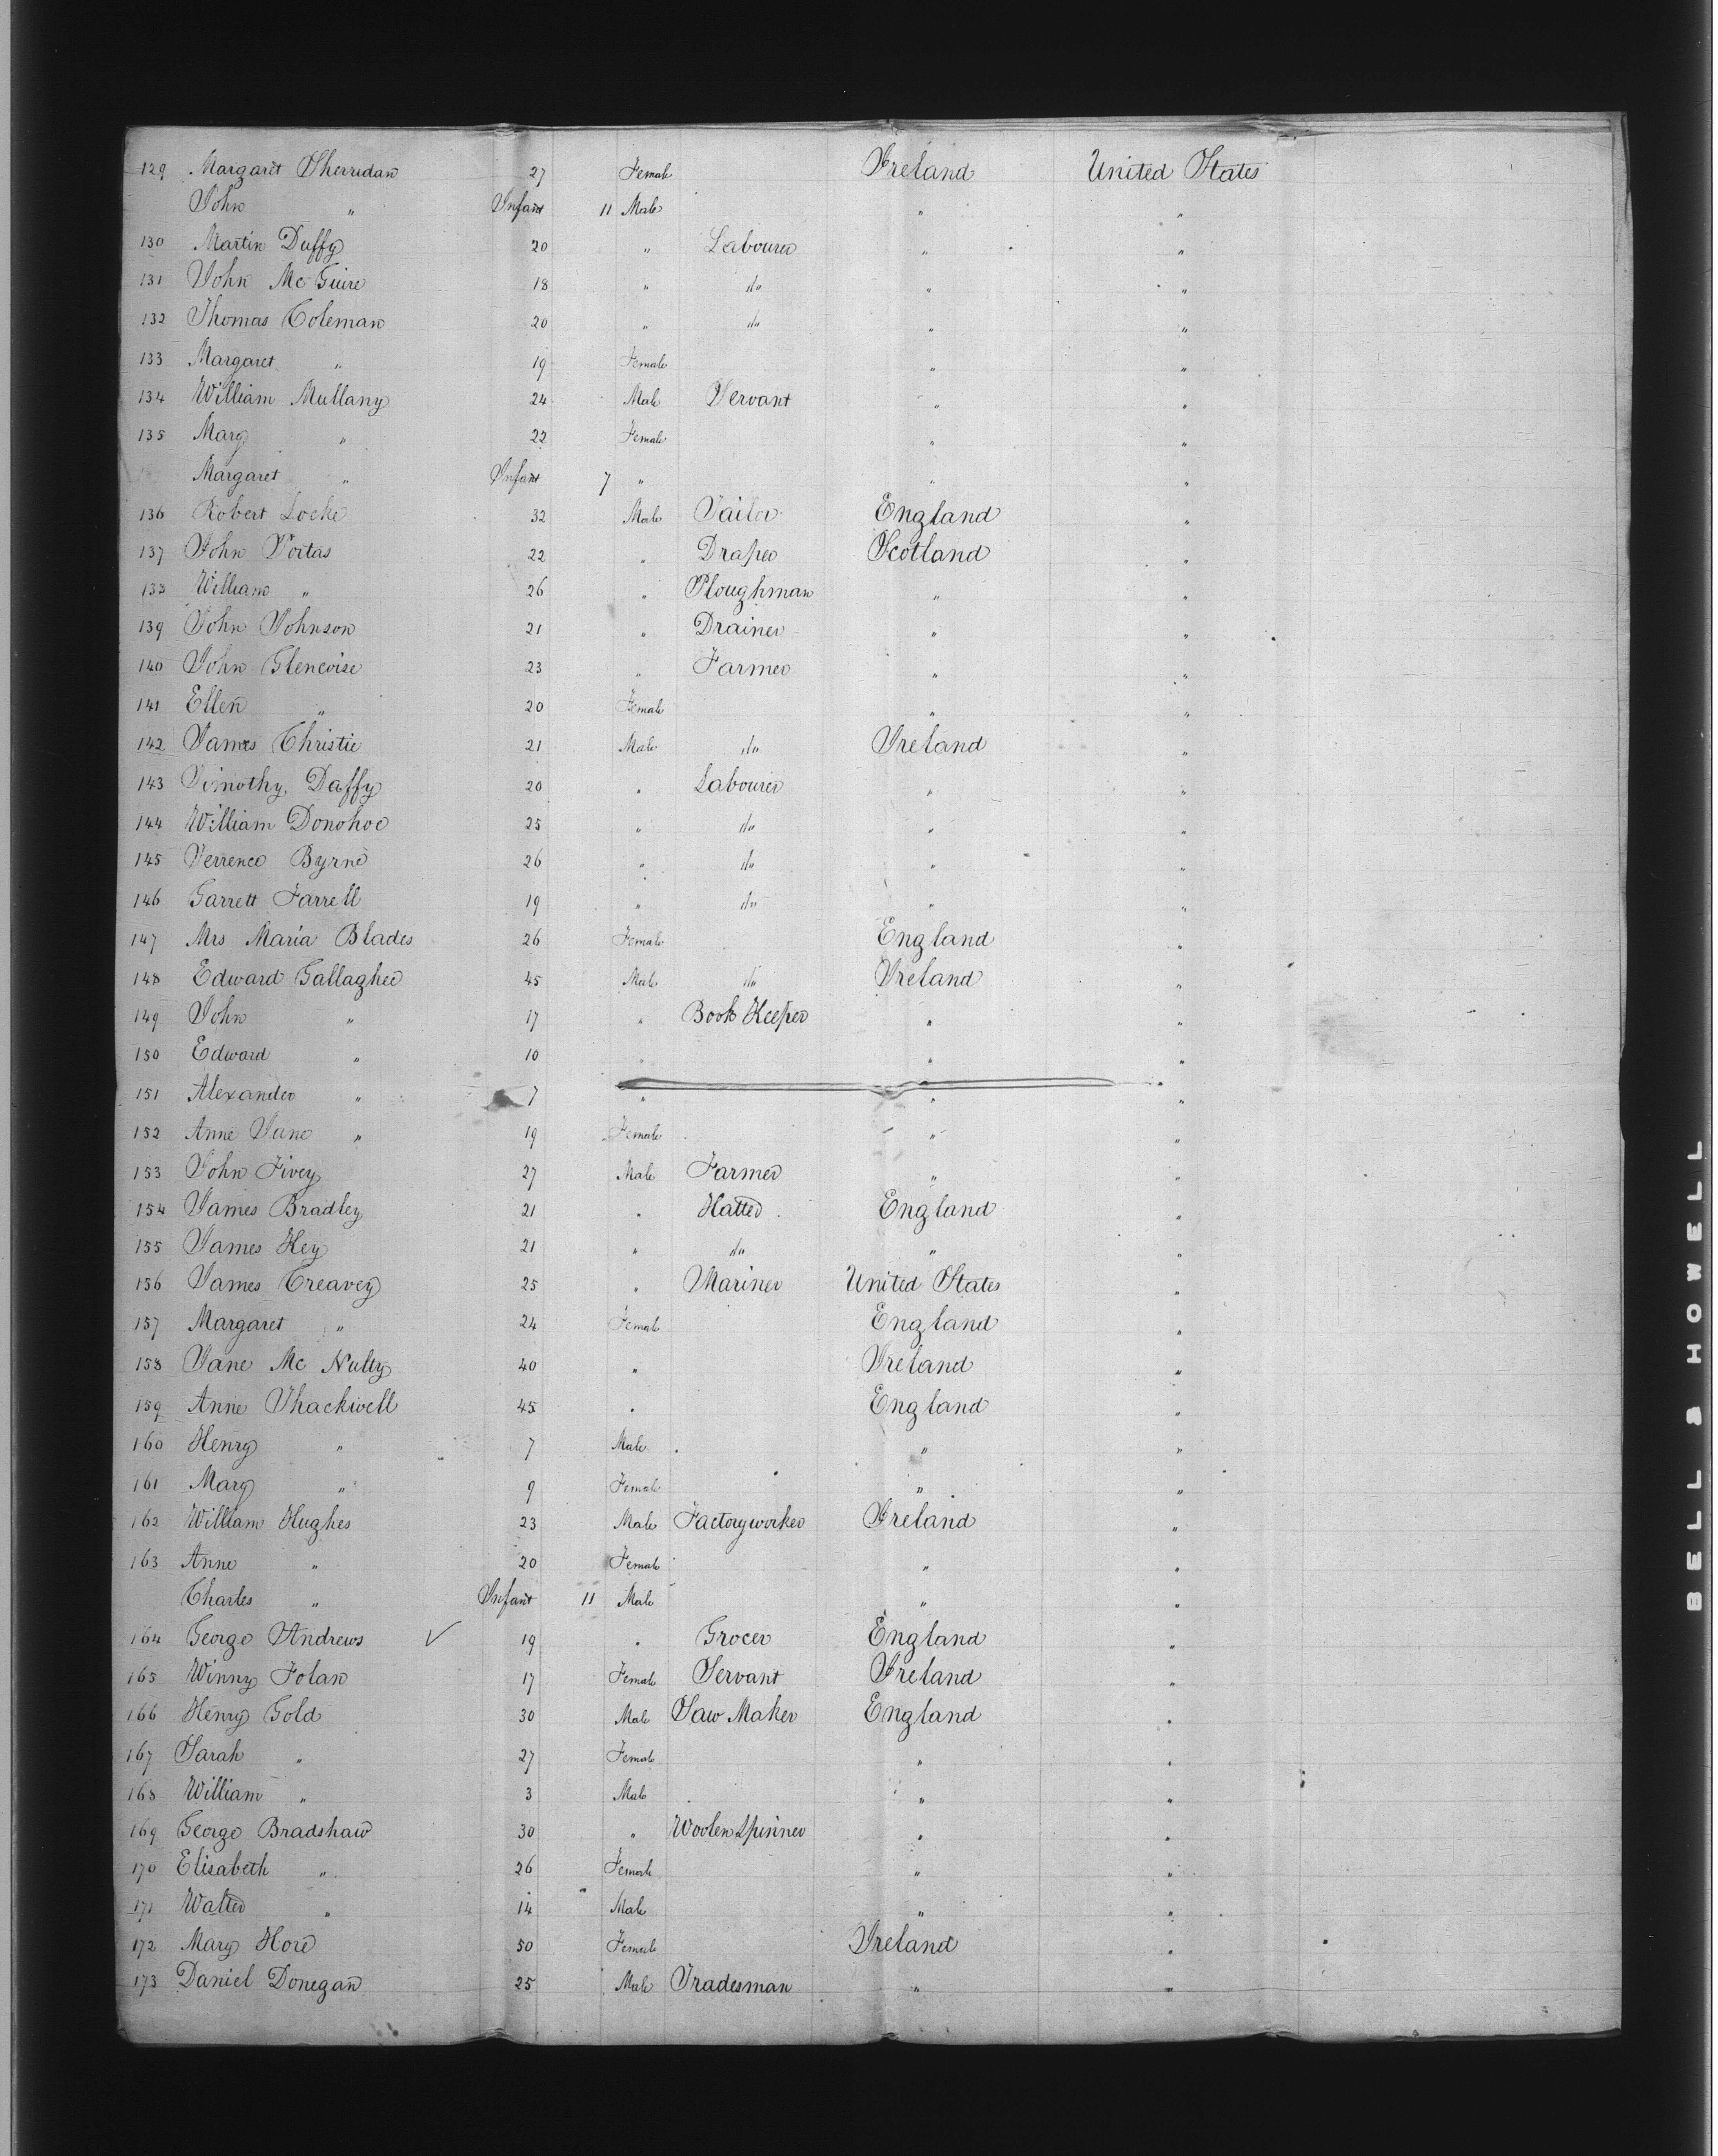 129 Margaret Sherridan 27 Female Ireland United States
John " Infant 11 Male " "
130 Martin Duffy 20 " Labourer " "
131 John McGuire 18 " do " "
132 Thomas Coleman 20 " do " "
133 Margaret " 19 Female " "
134 William Mullany 24 Male Servant " "
135 Mary " 22 Female " "
Margaret " Infant 7 " " "
136 Robert Locke 32 Male Tailor England "
137 John Portas 22 " Draper Scotland "
138 William " 26 " Ploughman " "
139 John Johnson 21 " Drainer " "
140 John Glencrise 23 " Farmer " "
141 Ellen " 20 Female " "
142 James Christie 21 Male do Ireland "
143 Timothy Daffy 20 " Labourer " "
144 William Donohoe 25 " do " "
145 Terrence Byrne 26 " do " "
146 Garrett Farrell 19 " do " "
147 Mrs Maria Blades 26 Female England "
148 Edward Gallagher 45 Male do Ireland "
149 John " 17 " Book Keeper " "
150 Edward " 10 " " "
151 Alexander " 7 " " "
152 Anne Jane " 19 Female " "
153 John Fivey 27 Male Farmer " "
154 James Bradley 21 " Hatter England "
155 James Key 21 " do " "
156 James Creavey 25 " Mariner United States "
157 Margaret " 24 Female England "
158 Jane Mc Nulty 40 " Ireland "
159 Anne Thackwell 45 " England "
160 Henry " 7 Male " "
161 Mary " 9 Female " "
162 William Hughes 23 Male Factory worker Ireland "
163 Anne " 20 Female " "
Charles " Infant 11 Male " "
164 George Andrews ✓ 19 " Grocer England "
165 Winny Folan 17 Female Servant Ireland "
166 Henry Gold 30 Male Saw Maker England "
167 Sarah " 27 Female " "
168 William " 3 Male " "
169 George Bradshaw 30 " Woolen Spinner " "
170 Elisabeth " 26 Female " "
171 Walter " 14 Male " "
172 Mary Hore 50 Female Ireland "
173 Daniel Donegan 25 Male Tradesman " "
BELL & HOWELL